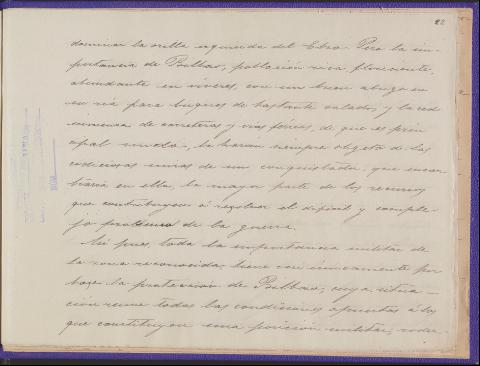 22
dominar la orilla izquierda del Ebro. Pero la im-
portancia de Bilbao, población rica, floreciente,
abundante en víveres, con un buen abrigo en
su ría para buques de bastante calado, y la red
inmensa de carreteras y vías férreas, de que es prin
cipal nudo, la harán siempre objeto de las
codiciosas miras de un conquistador, que encon
traría en ella, la mayor parte de los recursos
que contribuyen á resolver el difícil y comple-
jo problema de la guerra.
Así pues, toda la importancia militar de
la zona reconocida, tiene casi únicamente por
base la protección de Bilbao, cuya situa-
ción reune todas las condiciones apuntas á las
que constituyen una posición militar; rodea-